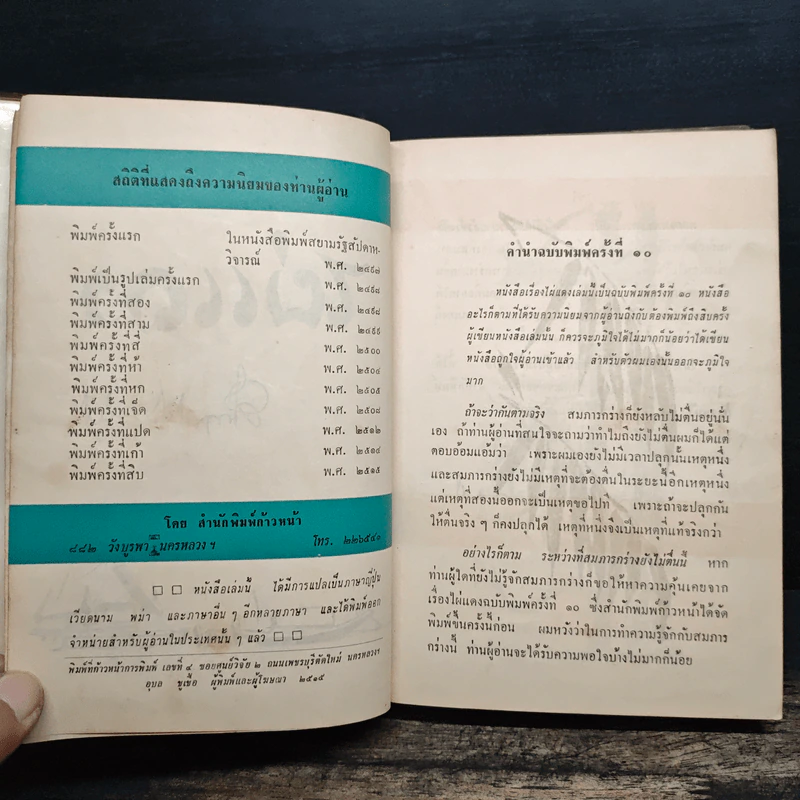 สถิติที่แสดงถึงความนิยมของท่านผู้อ่าน
พิมพ์ครั้งแรก ในหนังสือพิมพ์สยามรัฐสัปดาห-
วิจารณ์ พ.ศ. ๒๔๙๗
พิมพ์เป็นรูปเล่มครั้งแรก พ.ศ. ๒๔๙๘
พิมพ์ครั้งที่สอง พ.ศ. ๒๔๙๘
พิมพ์ครั้งที่สาม พ.ศ. ๒๔๙๙
พิมพ์ครั้งที่สี่ พ.ศ. ๒๕๐๐
พิมพ์ครั้งที่ห้า พ.ศ. ๒๕๐๔
พิมพ์ครั้งที่หก พ.ศ. ๒๕๐๕
พิมพ์ครั้งที่เจ็ด พ.ศ. ๒๕๐๘
พิมพ์ครั้งที่แปด พ.ศ. ๒๕๑๒
พิมพ์ครั้งที่เก้า พ.ศ. ๒๕๑๔
พิมพ์ครั้งที่สิบ พ.ศ. ๒๕๑๕
โดย สำนักพิมพ์ก้าวหน้า
๘๘๒ วังบูรพา นครหลวง ฯ โทร. ๒๒๖๕๔๑
หนังสือเล่มนี้ ได้มีการแปลเป็นภาษาญี่ปุ่น
เวียดนาม พม่า และภาษาอื่น ๆ อีกหลายภาษา และได้พิมพ์ออก
จำหน่ายสำหรับผู้อ่านในประเทศนั้น ๆ แล้ว
พิมพ์ที่ก้าวหน้าการพิมพ์ เลขที่ ๔ ซอยศูนย์วิจัย ๒ ถนนเพชรบุรีตัดใหม่ นครหลวงฯ
อุบล ชูเชื้อ ผู้พิมพ์และผู้โฆษณา ๒๕๑๕
คำนำฉบับพิมพ์ครั้งที่ ๑๐
หนังสือเรื่องไผ่แดงเล่มนี้เป็นฉบับพิมพ์ครั้งที่ ๑๐ หนังสือ
อะไรก็ตามที่ได้รับความนิยมจากผู้อ่านถึงกับต้องพิมพ์ถึงสิบครั้ง
ผู้เขียนหนังสือเล่มนั้น ก็ควรจะภูมิใจได้ไม่มากก็น้อยว่าได้เขียน
หนังสือถูกใจผู้อ่านเข้าแล้ว สำหรับตัวผมเองนั้นออกจะภูมิใจ
มาก
ถ้าจะว่ากันตามจริง สมภารกร่างก็ยังหลับไม่ตื่นอยู่นั่น
เอง ถ้าท่านผู้อ่านที่สนใจจะถามว่าทำไมถึงยังไม่ตื่นผมก็ได้แต่
ตอบอ้อมแอ้มว่า เพราะผมเองยังไม่มีเวลาปลุกนั้นเหตุหนึ่ง
และสมภารกร่างยังไม่มีเหตุที่จะต้องตื่นในระยะนี้อีกเหตุหนึ่ง
แต่เหตุที่สองนี้ออกจะเป็นเหตุขอไปที เพราะถ้าจะปลุกกัน
ให้ตื่นจริง ๆ ก็คงปลุกได้ เหตุที่หนึ่งจึงเป็นเหตุที่แท้จริงกว่า
อย่างไรก็ตาม ระหว่างที่สมภารกร่างยังไม่ตื่นนี้ หาก
ท่านผู้ใดที่ยังไม่รู้จักสมภารกร่างก็ขอให้หาความคุ้นเคยจาก
เรื่องไผ่แดงฉบับพิมพ์ครั้งที่ ๑๐ ซึ่งสำนักพิมพ์ก้าวหน้าได้จัด
พิมพ์ขึ้นครั้งนี้ก่อน ผมหวังว่าในการทำความรู้จักกับสมภาร
กร่างนี้ ท่านผู้อ่านจะได้รับความพอใจบ้างไม่มากก็น้อย